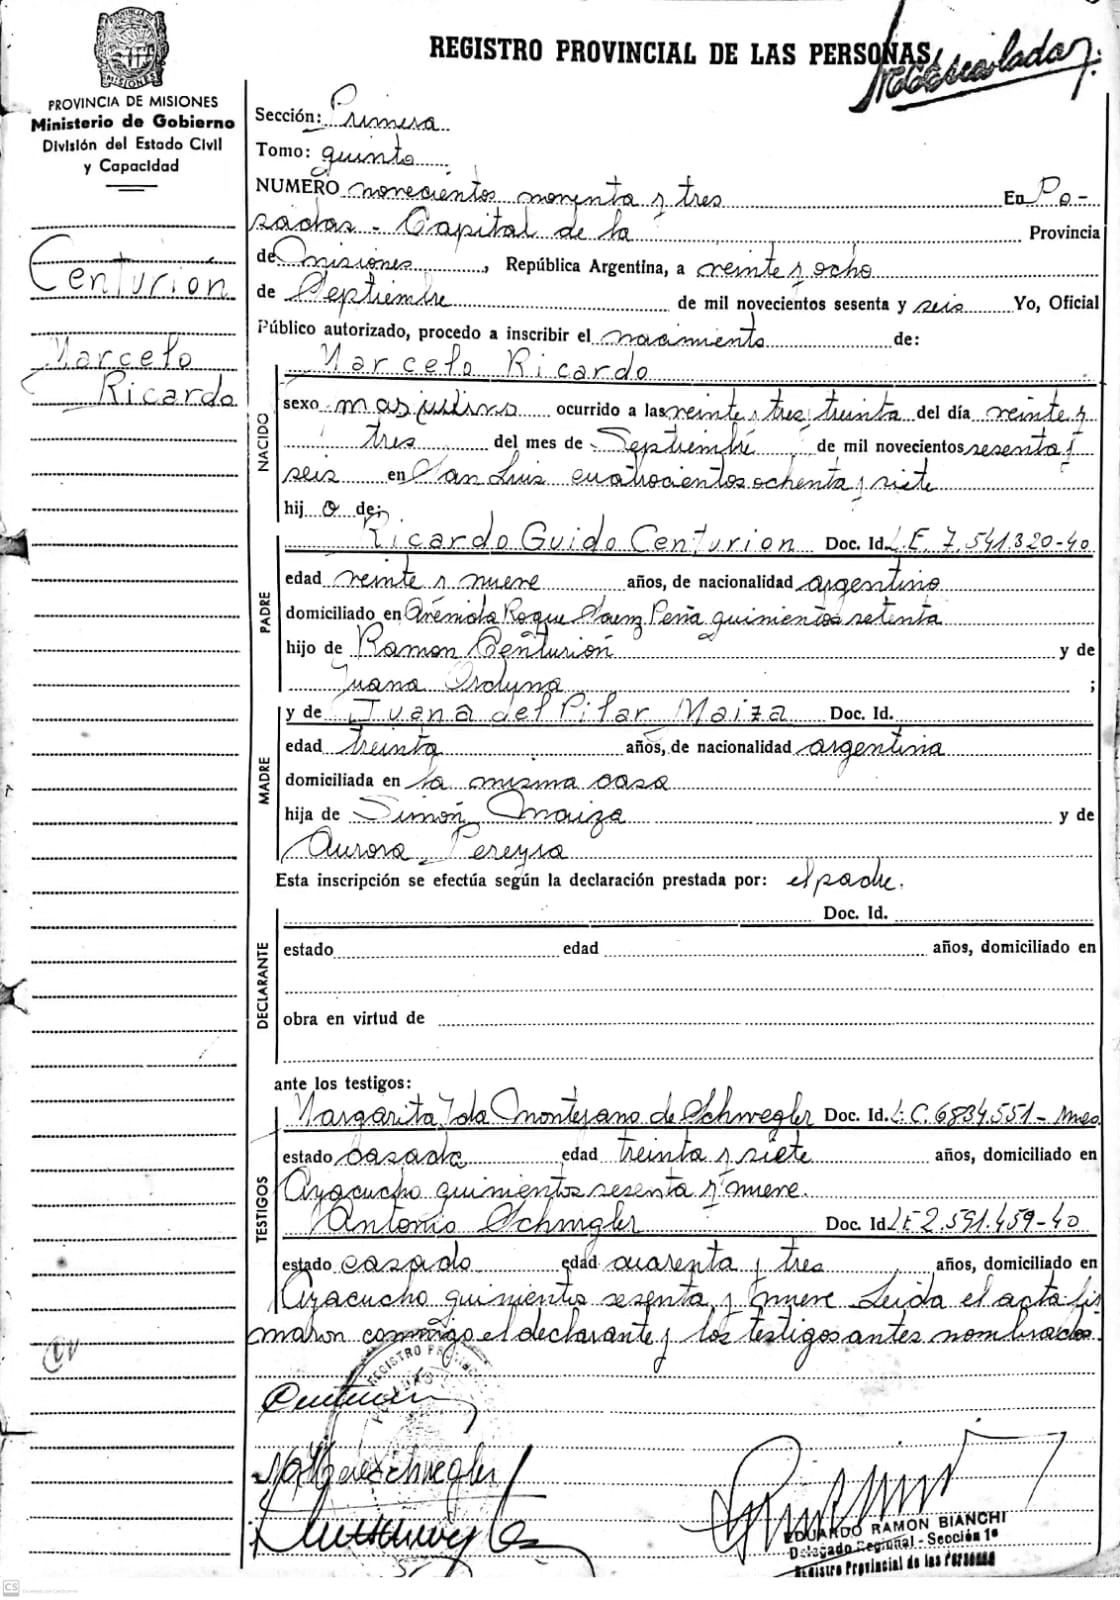 REGISTRO PROVINCIAL DE LAS PERSONAS
PROVINCIA DE MISIONES
Ministerio de Gobierno
División del Estado Civil
y Capacidad
Centurión
Marcelo
Ricardo
Sección: Primera
Tomo: quinto
NUMERO novecientos noventa y tres En Po-
sadas - Capital de la Provincia
de Misiones, República Argentina, a veinte y ocho
de Septiembre de mil novecientos sesenta y seis Yo, Oficial
Público autorizado, procedo a inscribir el nacimiento de:
NACIDO
Marcelo Ricardo
sexo masculino ocurrido a las veinte y tres, treinta del día veinte y
tres del mes de Septiembre de mil novecientos sesenta y
seis en San Luis cuatrocientos ochenta y siete
hij o de:
PADRE
Ricardo Guido Centurion Doc. Id. L.E. 7.541.320-40
edad veinte y nueve años, de nacionalidad argentino
domiciliado en Avenida Roque Saenz Peña quinientos setenta
hijo de Ramon Centurión y de
Juana Orduna ;
MADRE
y de Juana del Pilar Maiza Doc. Id.
edad treinta años, de nacionalidad argentina
domiciliada en la misma casa
hija de Simón Maiza y de
Aurora Pereyra
Esta inscripción se efectúa según la declaración prestada por: el padre.
DECLARANTE
Doc. Id.
estado edad años, domiciliado en
obra en virtud de
ante los testigos:
TESTIGOS
Margarita Ida Montejano de Schwegler Doc. Id. L.C. 6834.551-
estado casada edad treinta y siete años, domiciliado en
Ayacucho quinientos sesenta y nueve.
Antonio Schwegler Doc. Id. LE 2.591.459-40
estado casado edad cuarenta y tres años, domiciliado en
Ayacucho quinientos sesenta y nueve Leida el acta fir
maron conmigo el declarante y los testigos antes nombrados.
REGISTRO
EDUARDO RAMON BIANCHI
Delegado Regional - Sección 1ª
Registro Provincial de las Personas
CS